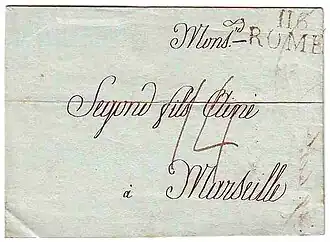 116
ROME
Mons.
Segond fils Aîné
14
à Marseille